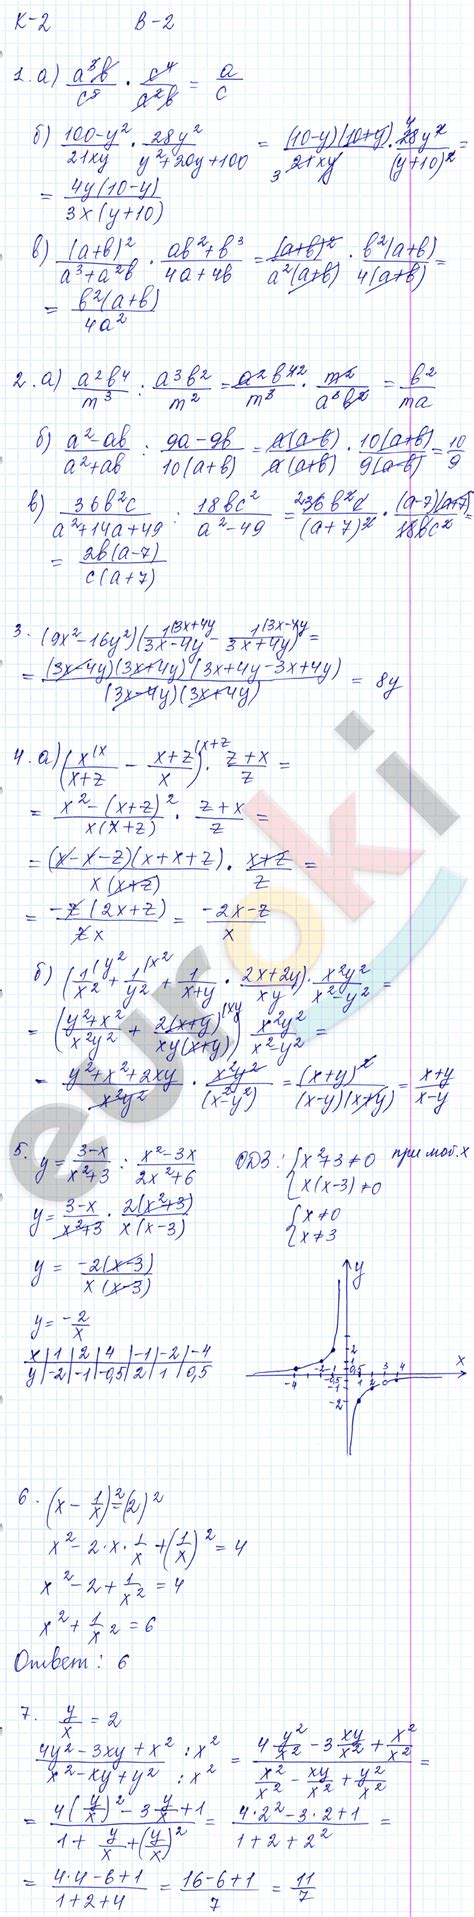 К-2 В-2
1. а) a³b/c⁵ · c⁴/a²b = a/c
б) 100-y²/21xy · 28y²/y²+20y+100 = (10-y)(10+y)/3 21xy · 4 28y²/(y+10)² =
= 4y(10-y)/3x(y+10)
в) (a+b)²/a³+a²b · ab²+b³/4a+4b = (a+b)²/a²(a+b) · b²(a+b)/4(a+b) =
= b²(a+b)/4a²
2. а) a²b⁴/m³ : a³b²/m² = a²b⁴²/m³ · m²/a³b² = b²/ma
б) a²-ab/a²+ab : 9a-9b/10(a+b) = a(a-b)/a(a+b) · 10(a+b)/9(a-b) = 10/9
в) 36b²c/a²+14a+49 : 18bc²/a²-49 = 2 36b²c/(a+7)² · (a-7)(a+7)/18bc² =
= 2b(a-7)/c(a+7)
3. (9x²-16y²)(1(3x+4y/3x-4y - 1(3x-4y/3x+4y) =
= (3x-4y)(3x+4y)(3x+4y-3x+4y)/(3x-4y)(3x+4y) = 8y
4. а) (x(x/x+z - x+z(x+z/x) · z+x/z =
= x²-(x+z)²/x(x+z) · z+x/z =
= (x-x-z)(x+x+z)/x(x+z) · x+z/z =
= -z(2x+z)/zx = -2x-z/x
б) (1(y²/x² + 1(x²/y² + 1/x+y · 2x+2y/xy) · x²y²/x²-y² =
= (y²+x²/x²y² + 2(x+y)(xy/xy(x+y)) x²y²/x²-y² =
= y²+x²+2xy/x²y² · x²y²/(x²-y²) = (x+y)²/(x-y)(x+y) = x+y/x-y
5. y = 3-x/x²+3 : x²-3x/2x²+6 ОДЗ: {x²+3≠0 при люб. x
y = 3-x/x²+3 · 2(x²+3)/x(x-3) x(x-3)≠0
{x≠0
x≠3
y = -2(x-3)/x(x-3)
y = -2/x
x | 1 | 2 | 4 | -1 | -2 | -4
y | -2 | -1 | -0,5 | 2 | 1 | 0,5
y
x
2
1
-4 -2 -1 0,5 1 2 3 4
-0,5
-1
-2
6. (x - 1/x)² = (2)²
x² - 2·x·1/x + (1/x)² = 4
x² - 2 + 1/x² = 4
x² + 1/x² = 6
Ответ: 6
7. y/x = 2
4y²-3xy+x² : x²/x²-xy+y² : x² = 4y²/x² - 3xy/x² + x²/x²/x²/x² - xy/x² + y²/x² =
= 4(y/x)² - 3y/x + 1/1 + y/x + (y/x)² = 4·2²-3·2+1/1+2+2² =
= 4·4-6+1/1+2+4 = 16-6+1/7 = 11/7
euroki